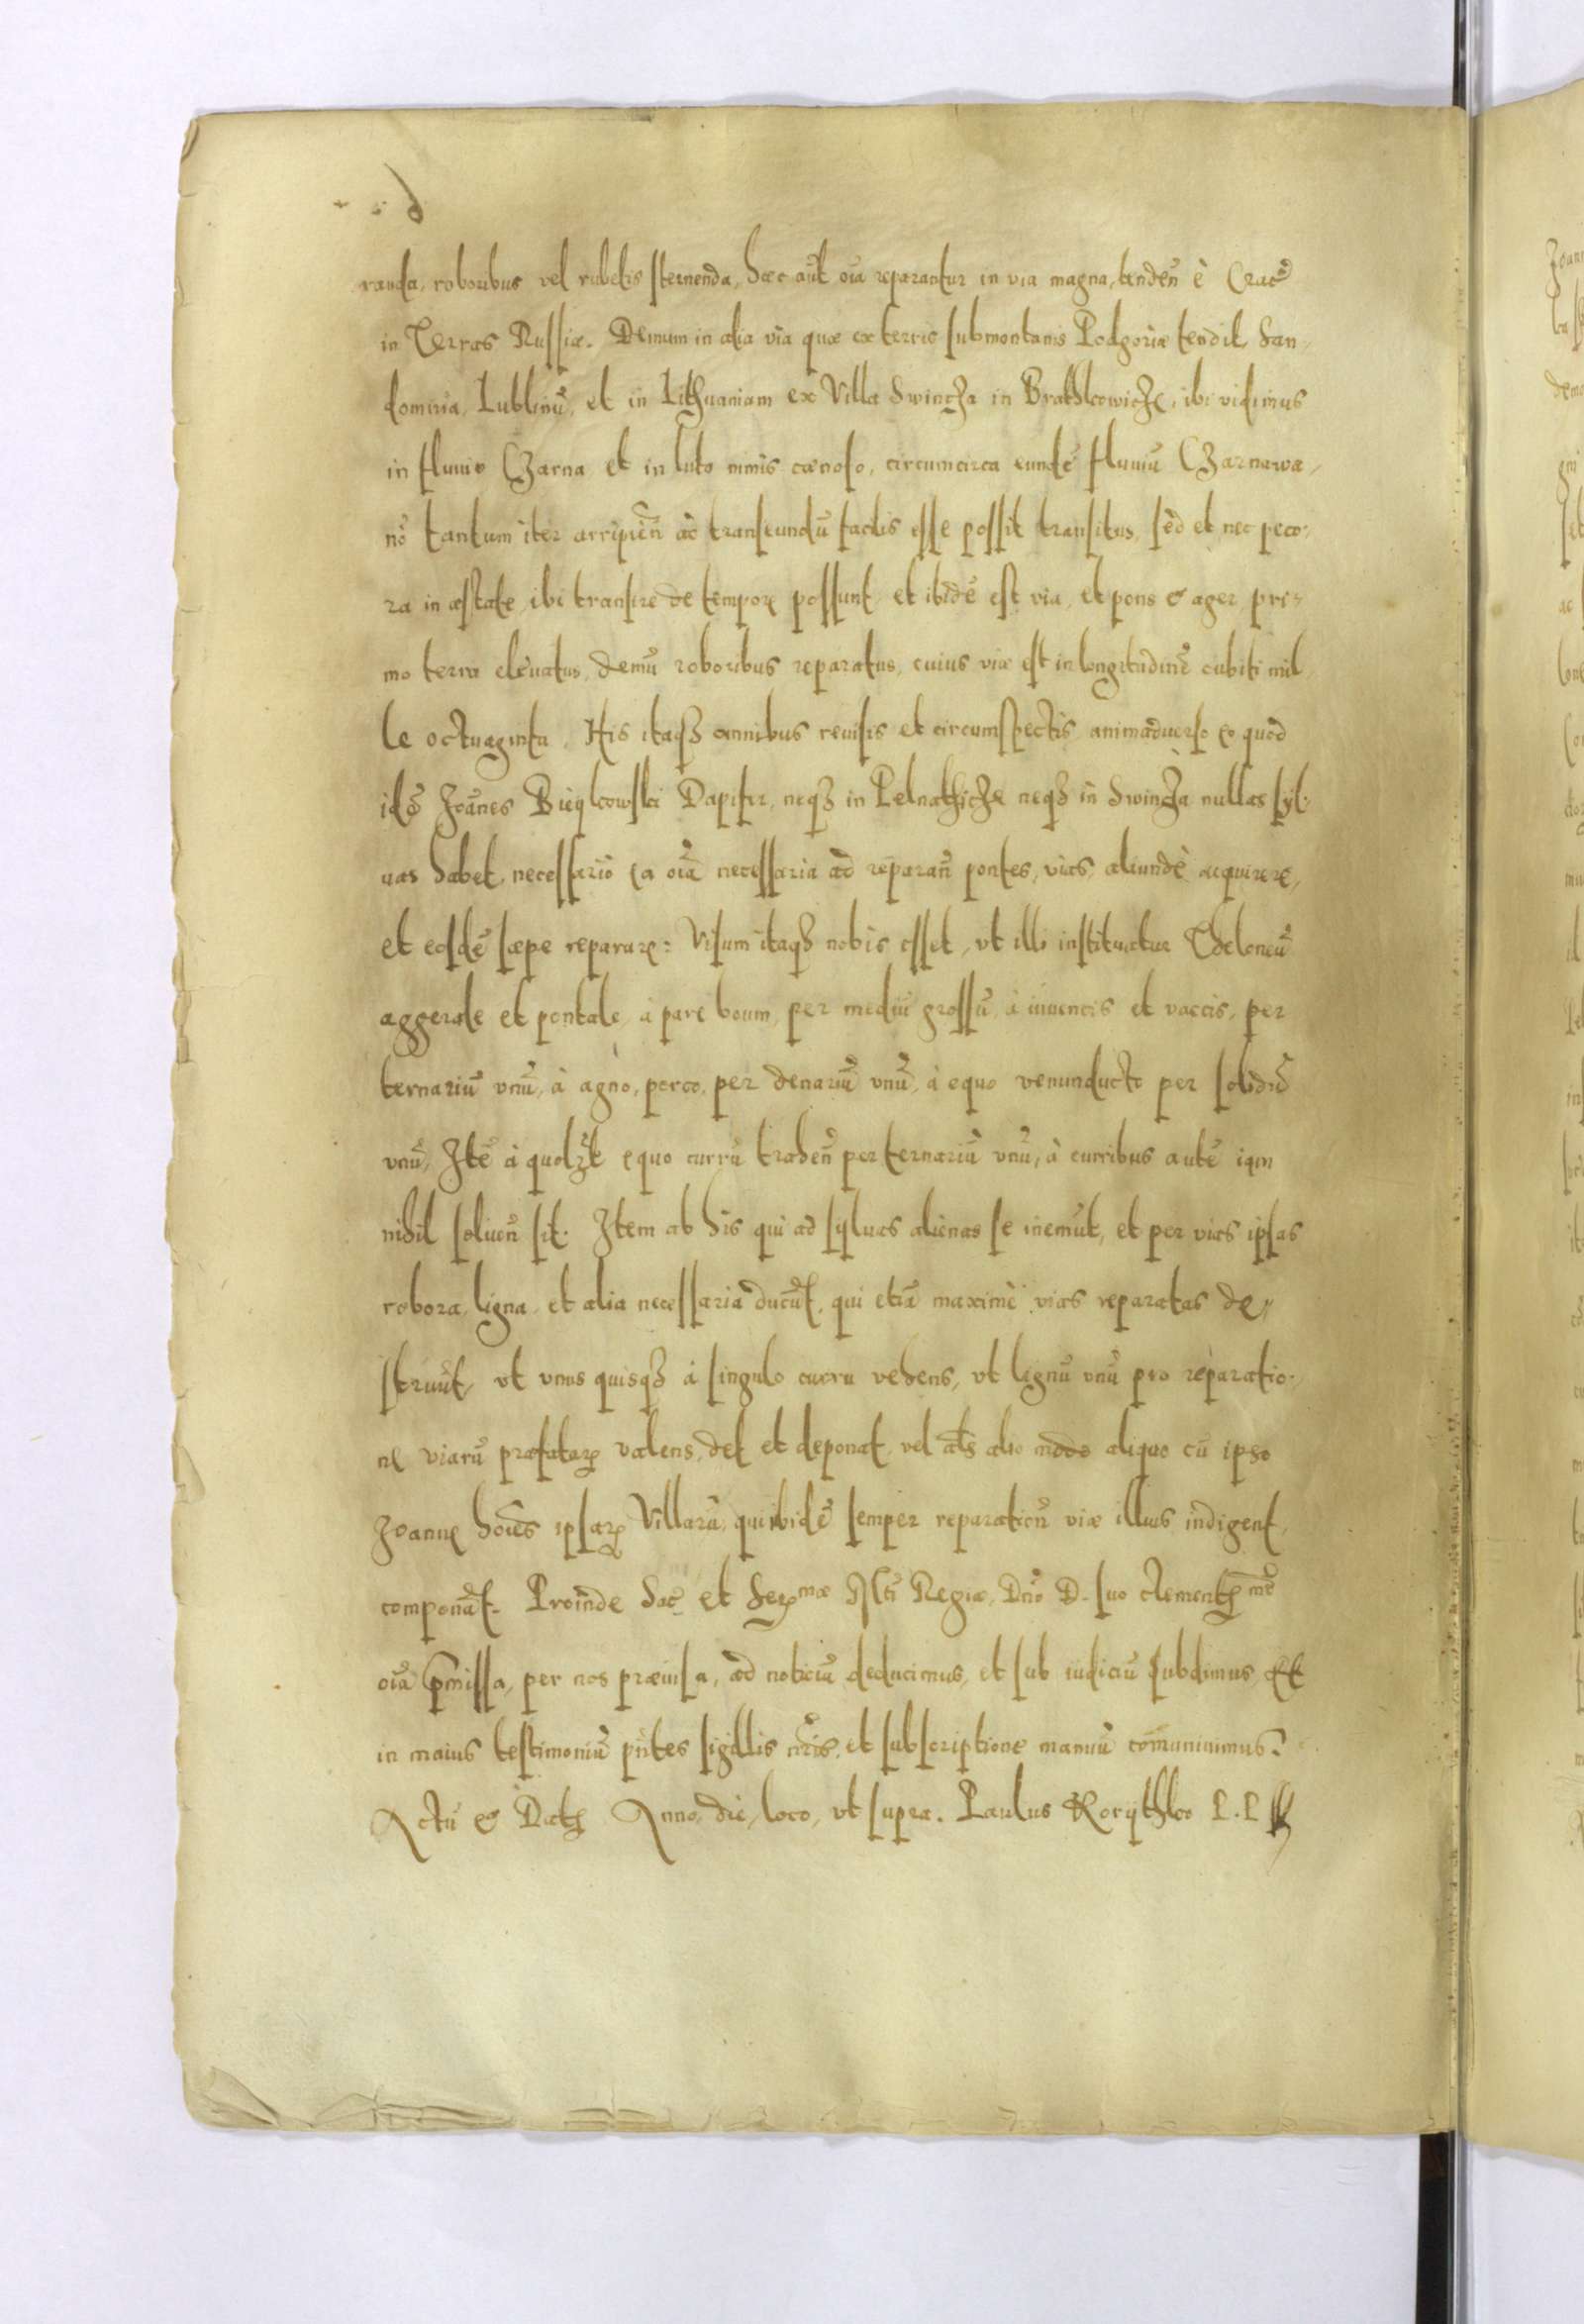 randa, roboribus vel rubetis sternenda, hæc aũt oĩa reparantur in via magna, tendeñ è Crac̃
in Terras Russiæ. Demum in alia via quæ ex terris submontanis Podgoriæ tendit, San-
domiria, Lublinũ, et in Lithuaniam ex Villa Swincza in Brathkowicze, ibi vidimus
in fluuio Czarna et in luto nimis cœnoso, circumcirca eundẽ fluuiũ Czarnawa,
nõ tantum iter arripieñ ac transeundũ facilis esse possit transitus, sed et nec peco-
ra in æstate, ibi transire de tempore possunt, et ibidẽ est via, et pons & ager, pri-
mo terra eleuatus, demũ roboribus reparatus, cuius viæ est in longitudinẽ cubiti mil
le octuaginta. His itaqȝ omnibus reuisis et circumspectis animaduerso eo quod
idẽ Joãnes Bieykowski Dapifer, neqȝ in Pelnathicze neqȝ in Swincza nullas syl-
uas habet, necessariò ea oĩa necessaria ad reparañ pontes, vias, aliundè acquirere,
et eosdẽ sæpe reparare: Visum itaqȝ nobis esset, vt illi instituatur Theloneũ
aggerale et pontale, à pare boum, per mediũ grossũ, à iuuencis et vaccis, per
ternariũ vnũ, à agno, porco, per denariũ vnũ, à equo venundacto per solidũ
vnũ, Itẽ à quolȝt equo currũ traheñ per ternariũ vnũ, à curribus autẽ iam
nihil solueñ sit. Item ab his qui ad syluas alienas se inemũt, et per vias ipsas
robora, ligna, et alia necessaria ducũt, qui etiã maximè vias reparatas de-
struũt, vt vnus quisqȝ à singulo curru vehens, vt lignũ vnũ pro reparatio-
ne viarũ præfataꝝ valens, det et deponat, vel als alio modo aliquo cũ ipso
Joanne hoĩes ipsaꝝ Villarũ, qui ibidẽ semper reparationẽ viæ illius indigent,
componãt. Proinde Sac et Serᵐᵃᵉ Mti Regiæ, Dño D. suo clementᵐᵒ
oĩa p̃missa, per nos præuisa, ad noticiã deducimus, et sub iudiciũ subdimus, Et
in maius testimoniũ pñtes sigillis nr̃is, et subscriptione manuũ com̃uniuimus.
Actũ & Datȝ Anno, die, loco, vt supra. Paulus Korythko P. P